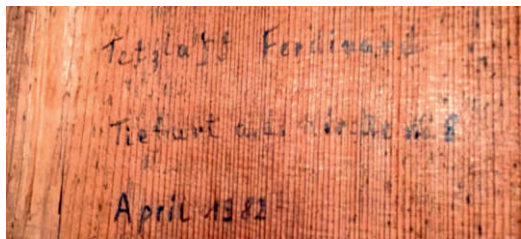 Tetzlaff Ferdinand
Tiefurt a.d. Kirche
April 1982